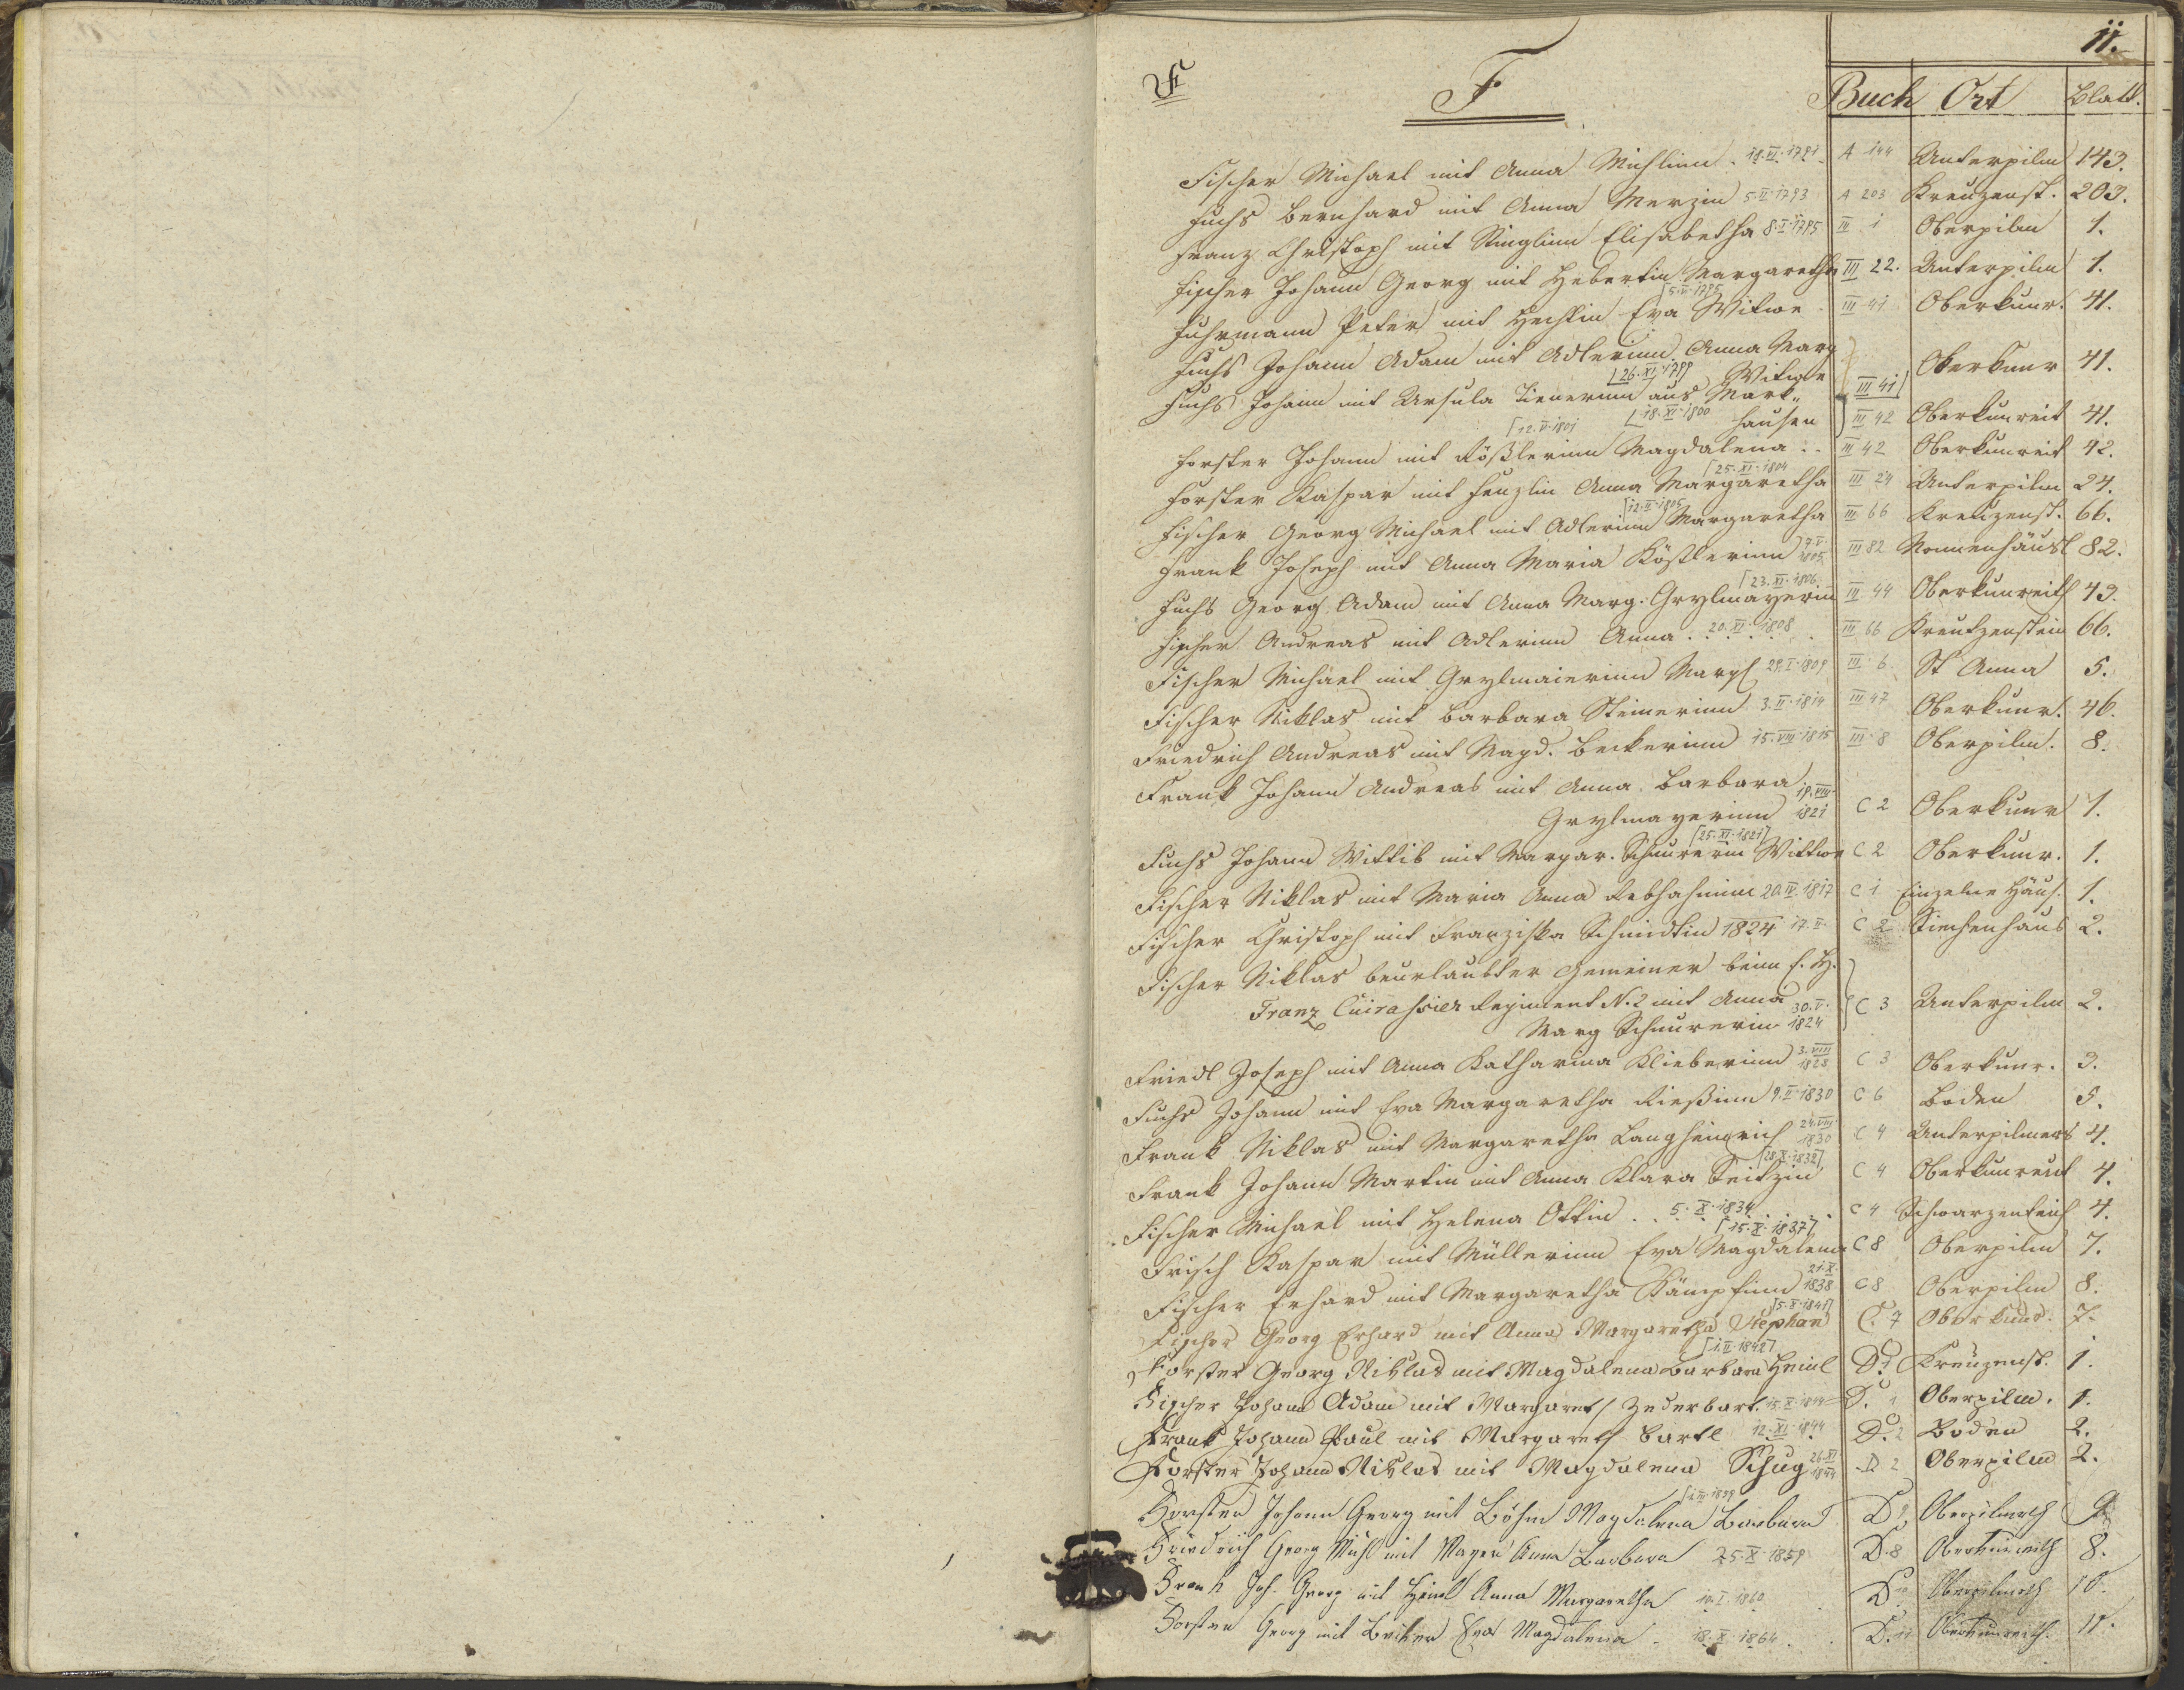 11.
F
F
Buch Ort Blatt.
Fischer Michael mit Anna Michlinn 18.VI.1791 A 144 Unterpilm 143.
Fuchs Bernhard mit Anna Merzin 5.II.1793 A 203 Kreuzenst. 203.
Franz Christoph mit Stinglinn Elisabetha 8.I.1795 III 1 Oberpilm 1.
Fischer Johann Georg mit Hebertin Margaretha III 22. Unterpilm 1.
5.V.1795
Fuhrmann Peter mit Hechtin Eva Witwe III 41 Oberkunr. 41.
Fuchs Johann Adam mit Adlerinn Anna Marg
26.XI.1799 Witwe III 41 Oberkunr 41.
Fuchs Johann mit Ursula Tienerinn aus Mark„
18.XI.1800 hausen III 42 Oberkunreit 41.
12.V.1801
Forster Johann mit Rößlerinn Magdalena . . III 42 Oberkunreit 42.
25.XI.1804
Forster Kaspar mit Henzlin Anna Margaretha III 24 Unterpilm 24.
12.II.1805
Fischer Georg Michael mit Adlerinn Margaretha III 66 Kreuzenst. 66.
Frank Joseph mit Anna Maria Kößlerinn 7.V. 1805 III 82 Nonnenhäusl 82.
23.XI.1806
Fuchs Georg Adam mit Anna Marg. Grylmayerin III 44 Oberkunreith 43.
Fischer Andreas mit Adlerinn Anna . 20.XI.1808 III 66 Kreutzenstein 66.
Fischer Michael mit Grylmaierinn Margh 29.I.1809 III 6. St Anna 5.
Fischer Niklas mit Barbara Steinerinn 3.II.1814 III 47 Oberkunr. 46.
Friedrich Andreas mit Magd. Beckerinn 15.VIII.1815 III 8 Oberpilm. 8.
Frank Johann Andreas mit Anna Barbara
Grylmayerinn 19.VIII. 1821 C 2 Oberkunr 1.
25.XI.1821
Fuchs Johann Wittib mit Margar. Schnurerin Wittwe C 2 Oberkunr. 1.
Fischer Niklas mit Maria Anna Rebhahninn 20.IV.1817 C 1 Einzelne Häus. 1.
Fischer Christoph mit Franziska Schmidtin 1824 17.II. C 2 Siechenhaus 2.
Fischer Niklas beurlaubter Gemeiner beim E. H.
Franz Cuirassier Regiment N. 2 mit Anna
Marg Schnurerin 30.V. 1824 C 3 Unterpilm 2.
Friedl Joseph mit Anna Katharina Klieberinn 3.VIII 1828 C 3 Oberkunr. 3.
Fuchs Johann mit Eva Margaretha Rießinn 9.II.1830 C 6 Boden 5.
Frank Niklas mit Margaretha Langheinrich 24.VIII 1830 C 4 Unterpilmers 4.
28.X.1832
Frank Johann Martin mit Anna Klara Seitzin C 4 Oberkunreut 4.
Fischer Michael mit Helena Ottin . . 5.X.1834 C 4 Schwarzenteich 4.
15.X.1837
Frisch Kaspar mit Müllerinn Eva Magdalena C 8 Oberpilm 7.
Fischer Erhard mit Margaretha Kämpfinn 21.X. 1838 C 8 Oberpilm 8.
5.X.1841
Fischer Georg Erhard mit Anna Margaretha Stephan C. 7 Oberkunr. 7.
1.II.1842
Forster Georg Niklas mit Magdalena Barbara Heinl D. 1 Kreuzenst. 1.
Fischer Johann Adam mit Margareth Zederbart. 15.X.1844 D. 1 Oberpilm. 1.
Frank Johann Paul mit Margareth Bartl 12.XI.1844 D. 2 Boden 2.
Forster Johann Niklas mit Magdalena Schug 26.XI 1844 D 2 Oberpilm 2.
Forster Johann Georg mit Böhm Magdalena Barbara D 9 Oberpilmreth 9
Friedrich Georg Michl mit Mayer Anna Barbara 25.X.1859 D. 8 Oberkunreith 8.
Frank Joh. Georg mit Heinl Anna Margaretha 10.I.1860 D 10 Oberpilmreth 10.
Forster Georg mit Becker Eva Magdalena . 18.X.1864 D. 11 Oberkunreith. 11.